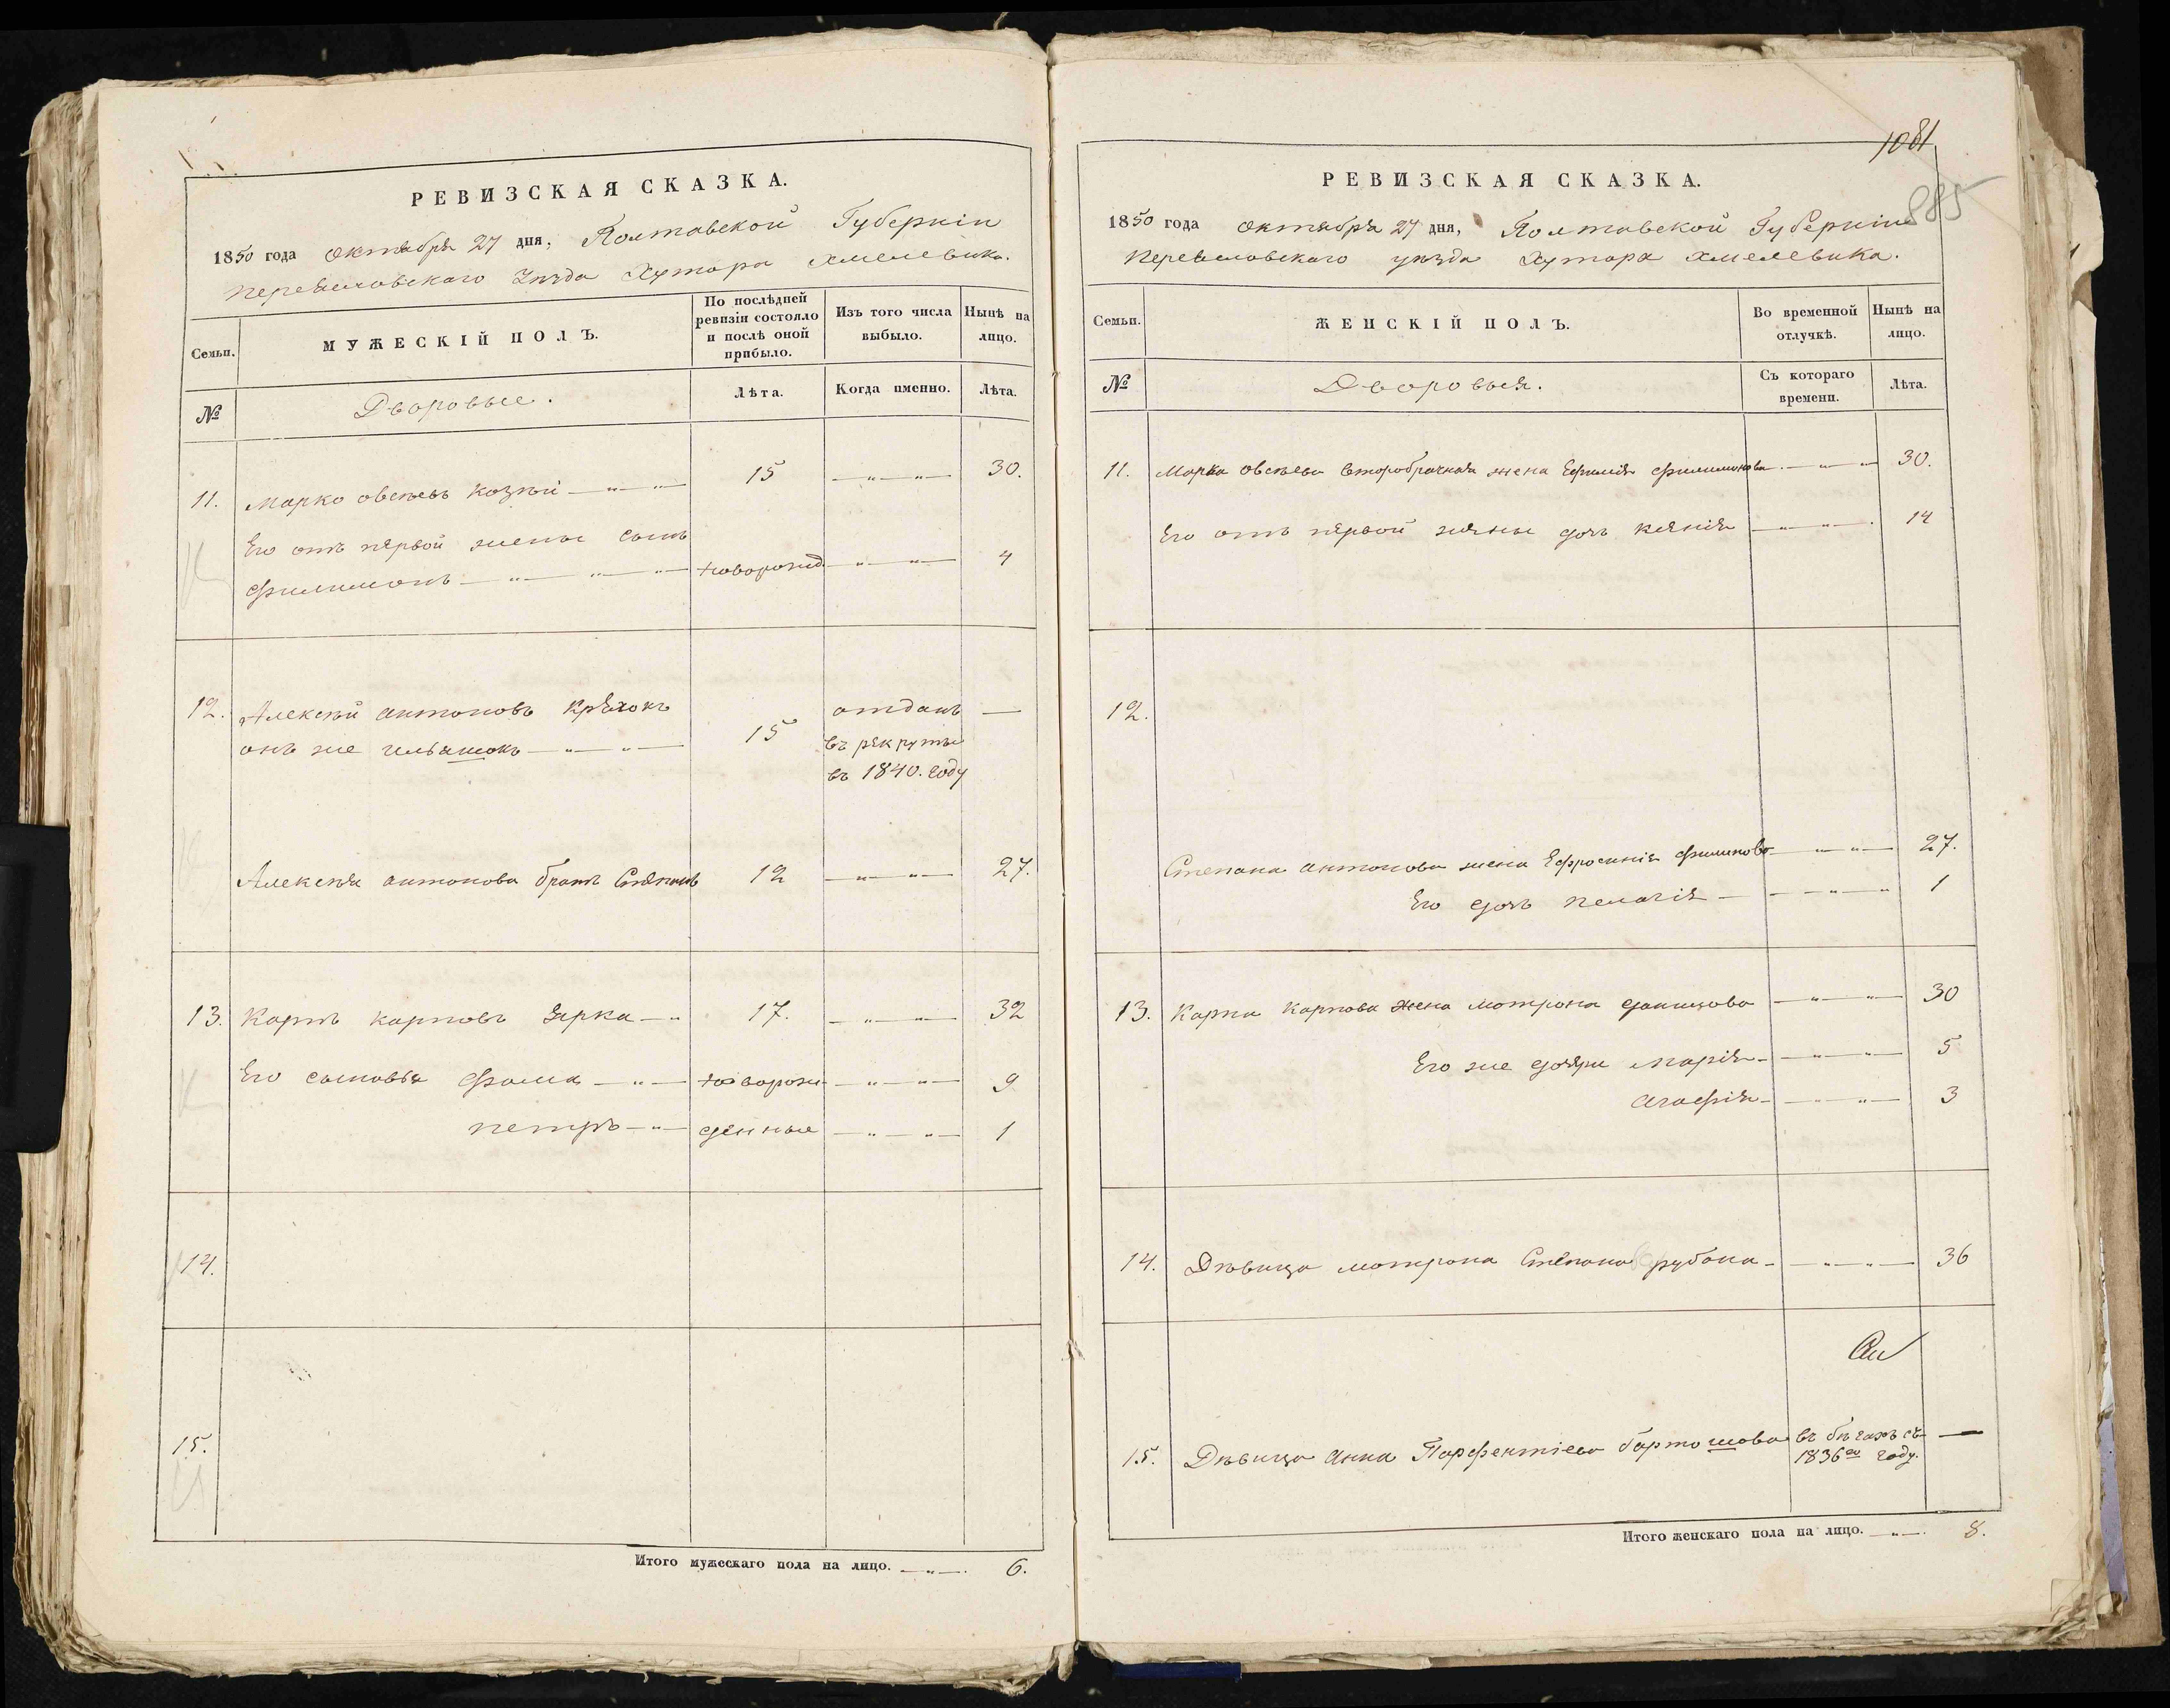 РЕВИЗСКАЯ СКАЗКА.
1850 года октября 27 дня, Полтавской Губернiи
Переяславскаго Уѣзда Хутора Хмелевика.
Семьи.
МУЖЕСКIЙ ПОЛЪ.
По послѣдней
ревизiи состояло
и послѣ оной
прибыло.
Изъ того числа
выбыло.
Нынѣ на
лицо.
№
Дворовые.
Лѣта.
Когда именно.
Лѣта.
11. Марко овсѣевъ Козѣй — „ — „ — 15 — „ — „ — 30.
Его отъ первой жены сынъ
Филимонъ — „ — „ — „ — новорожд. — „ — „ — 4
12. Алексѣй антоновъ
онъ же ильяшокъ — „ — „ — 15 отданъ —
въ рекруты
въ 1840. году
Алексѣя антонова братъ Степанъ 12 — „ — „ — 27.
13. Карпъ карповъ зирка — „ 17. — „ — „ — 32
Его сыновья Фома — „ — новорож- — „ — „ — 9
петръ — „ — денные — „ — „ — 1
14.
15.
Итого мужескаго пола на лицо. — „ —. 6.
1081
885
РЕВИЗСКАЯ СКАЗКА.
1850 года октября 27 дня, Полтавской Губернiи
Переяславскаго уѣзда Хутора Хмелевика.
Семьи.
ЖЕНСКIЙ ПОЛЪ.
Во временной
отлучкѣ.
Нынѣ на
лицо.
№
Дворовыя.
Съ котораго
времени.
Лѣта.
11. Марка овсѣева второбрачная жена Ефимiя филимонова. — „ — „ 30.
Его отъ первой жены дочь ксенiя — „ — „ —. 14
12.
Степана антонова жена Ефросинiя филипова — „ — „ — 27.
Его дочь пелагiя — — „ — „ 1
13. Карпа Карпова жена мотрона данилова — „ — „ — 30
Его же дочери марiя — — „ — „ — 5
агафiя — — „ — „ — 3
14. Дѣвица мотрона Степанова рубана — — „ — „ — 36
15. Дѣвица анна Парфентiева бартошова въ бѣгахъ съ —
1836го году.
Итого женскаго пола на лицо. — „ —. 8.